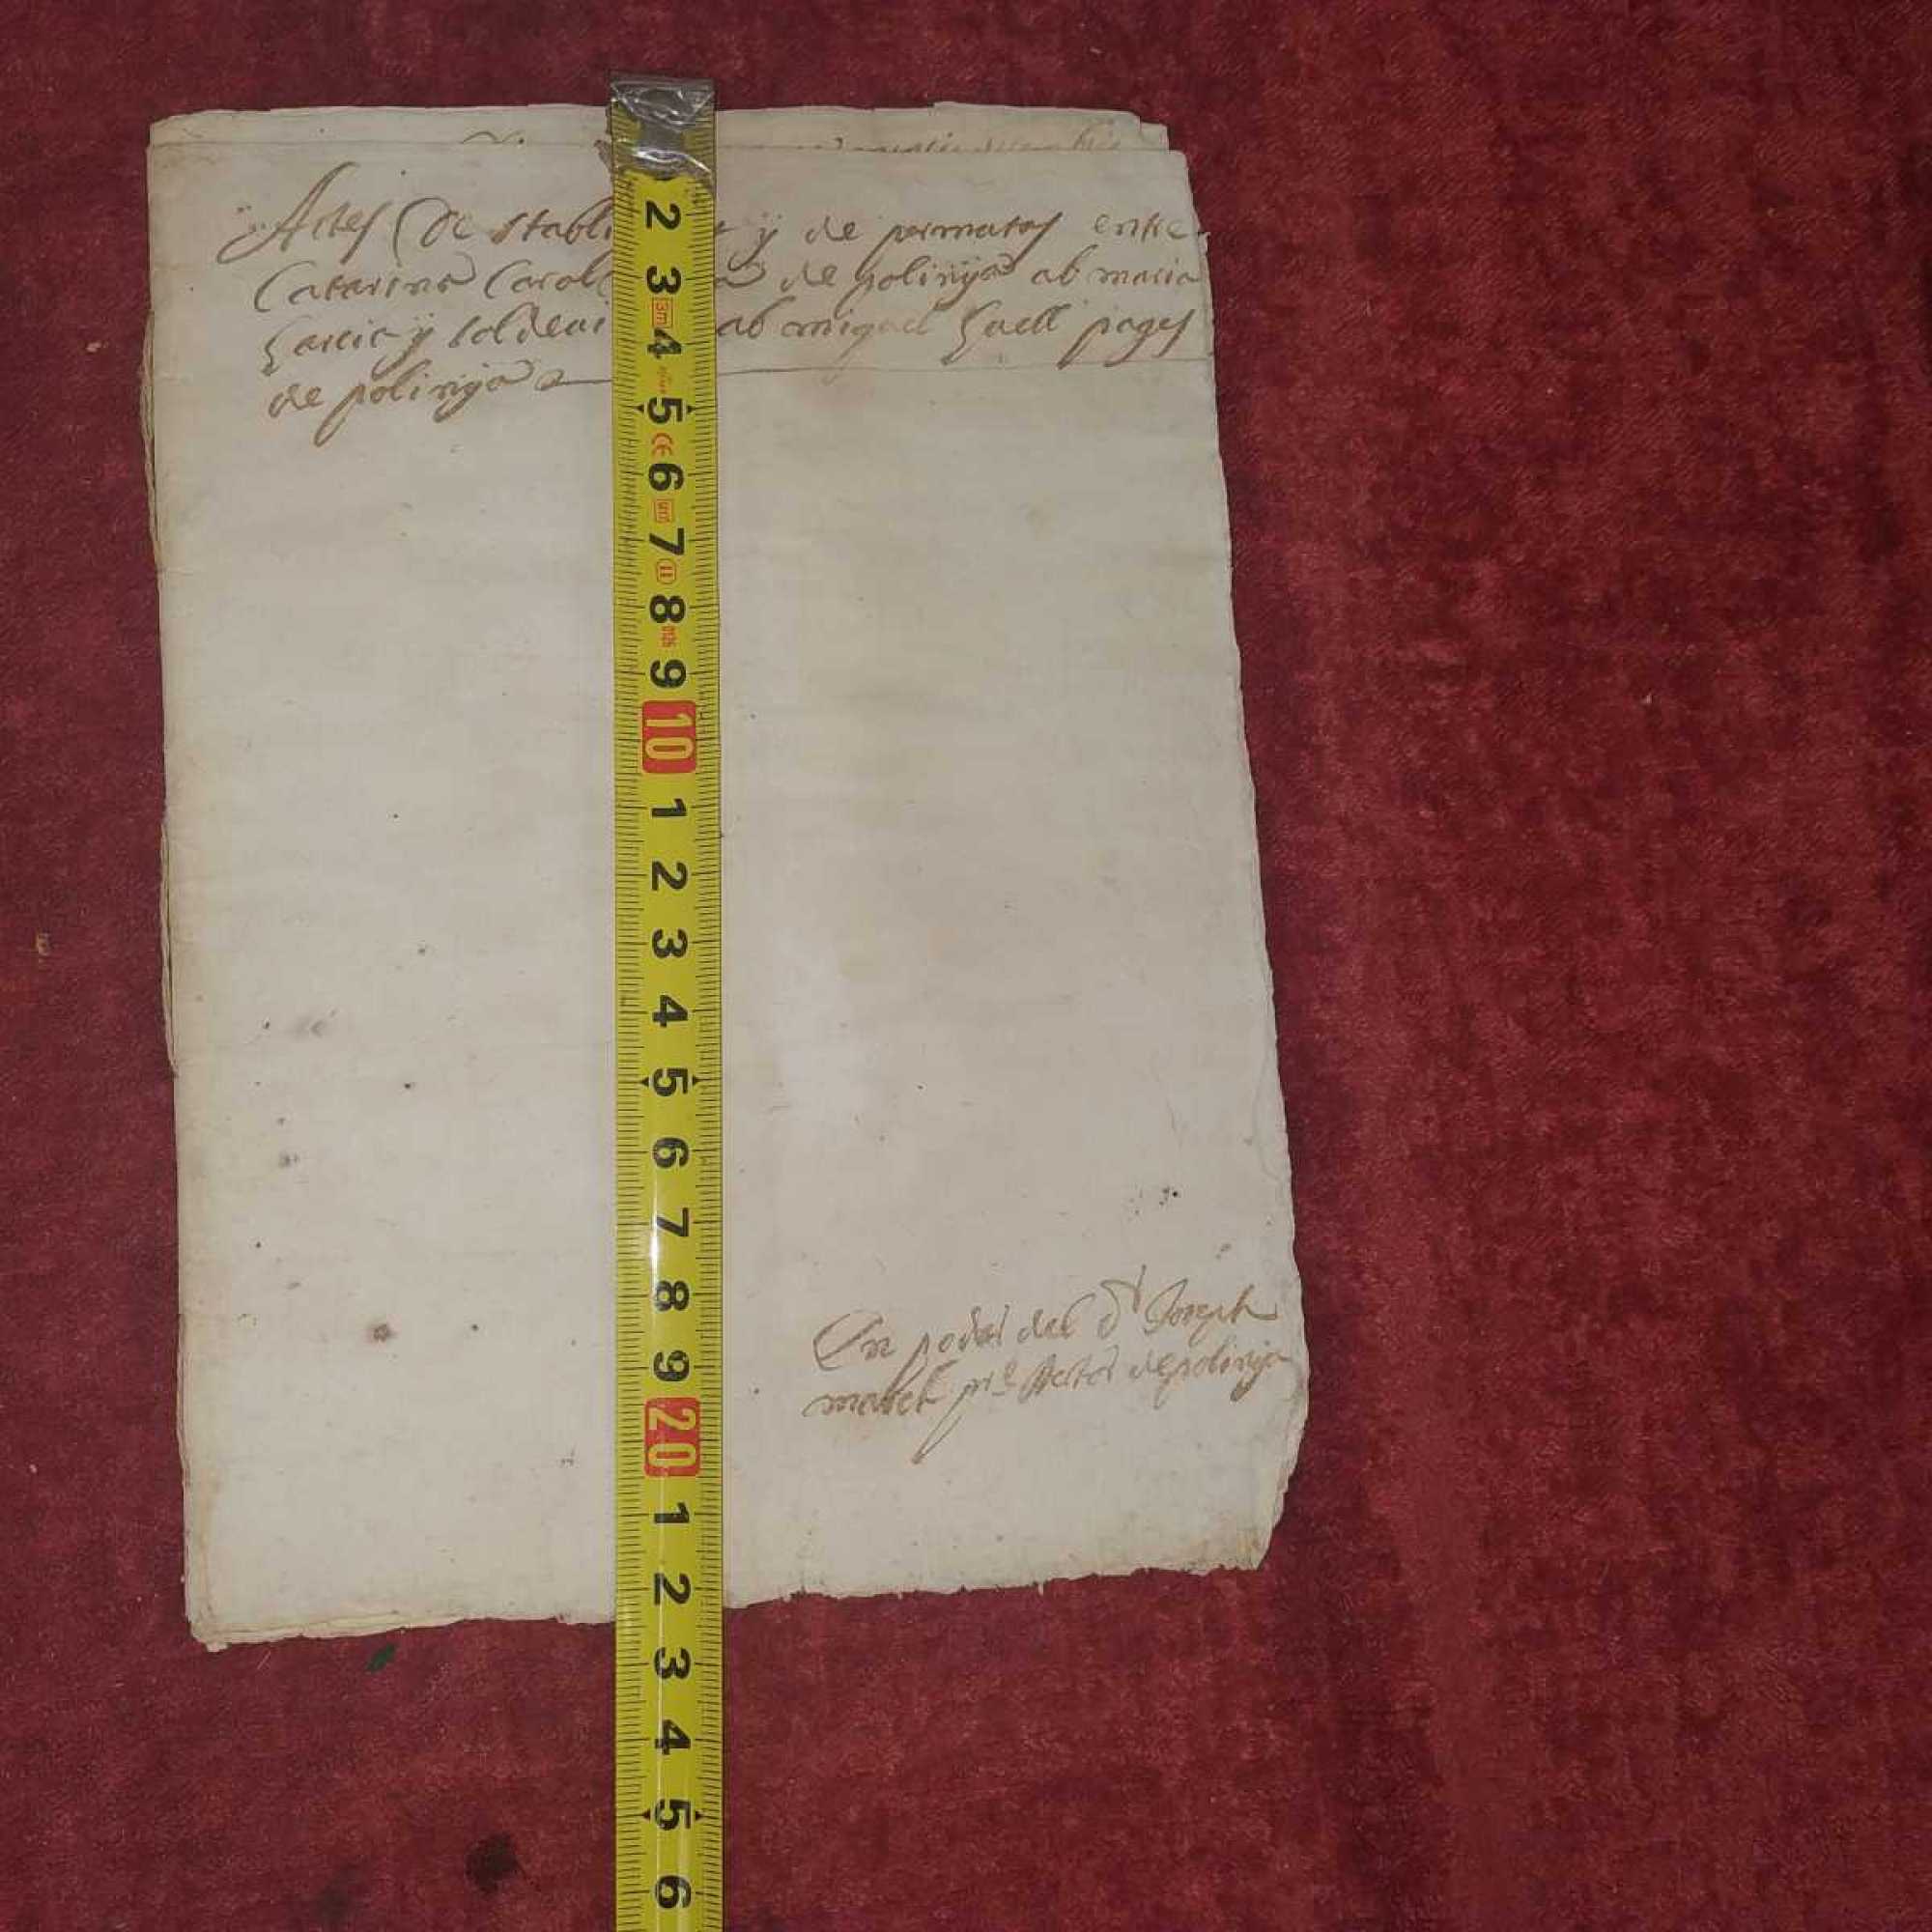 Actes de stabli t ÿ de permutas entre
Catarina Carol a de polinÿa ab maria
Garcia ÿ soldevi ab miquel Guell pages
de polinÿa
En poder del dr Joseph
maset pre Rector de polinya
2 3 4 5 6 7 8 9 10 1 2 3 4 5 6 7 8 9 20 1 2 3 4 5 6
3m
CE
II